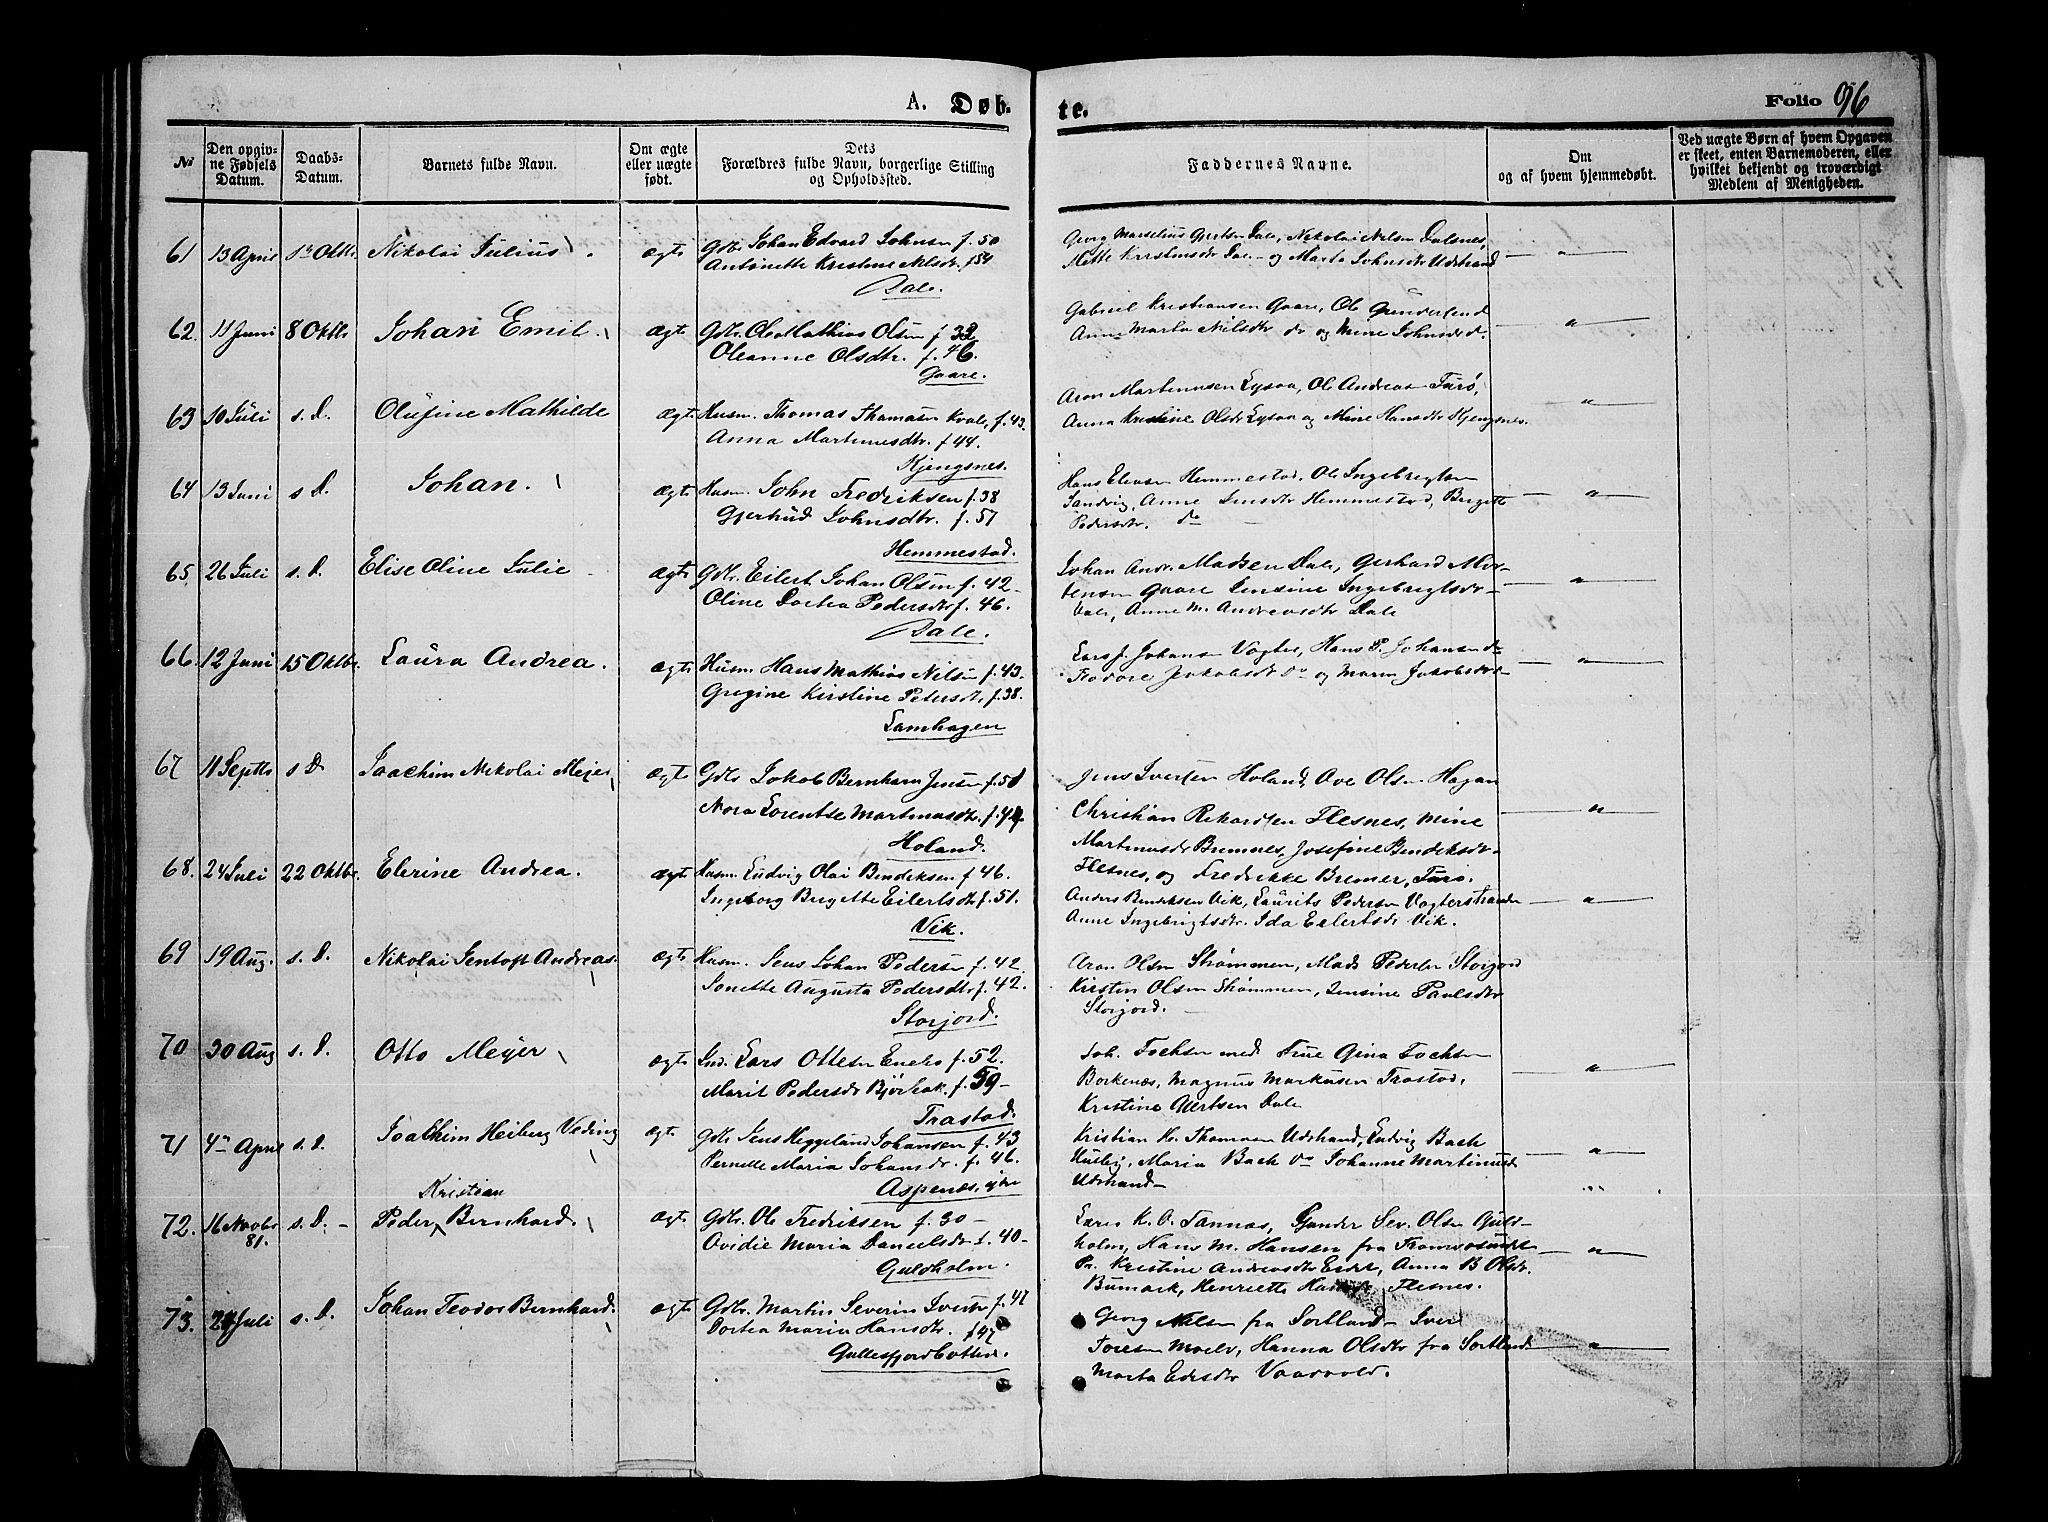 A. Døb-
te.
Folio 96
No
Den opgivne Fødsels Datum.
Daabs-Datum.
Barnets fulde Navn.
Om ægte eller uægte født.
Dets Forældres fulde Navn, borgerlige Stilling og Opholdssted.
Faddernes Navne.
Om og af hvem hjemmedøbt.
Ved uægte Børn af hvem Opgaven er skeet, enten Barnemoderen, eller hvilket bekjendt og troværdigt Medlem af Menigheden.
61 13 April 1ste Oktbr. Nikolai Julius ægte Gdbr. Johan Edvard Johnsen f. 50
Antonette Kristine Nilsdtr. f 54
Dale.
Georg Marselius Gertsen Dale, Nikolai Nilsen Dalsnes,
Mette Kristensdtr Dale og Marta Johnsdtr Udstrand
62. 11 Juni 8 Oktbr Johan Emil. ægte Gdbr. Ole Mathias Olsen f 32
Oleanne Olsdtr. f. 46.
Gaare.
Gabriel Kristiansen Gaare, Ole
Anne Marta Nilsdtr do og Mine Johnsdtr do.
63 10 Juli s. D. Olufine Mathilde ægte Husm. Thomas Thomasen Kvale, f. 43.
Anna Martinusdtr. f 44.
Kjengsnes.
Aron Martinusen Lysaa, Ole Andreas Turø,
Anna Kristine Olsdtr Lysaa og Mine Hansdtr Kjengsnes.
64 13 Juni s D. Johan. ægte Husm. John Fredriksen f. 38
Gjertrud Johnsdtr. f. 57
Hemmestad.
Hans Elensen Hemmestad, Ole Ingebrigtsen
Sandvig, Anne Jensdtr Hemmestad, Brigette
Pedersdtr. do
65. 26 Juli s. D. Elise Oline Julie ægte Gdbr. Eilert Johan Olsen f. 42
Oline Dortea Pedersdtr f. 46.
Dale.
Johan Andr. Madsen Dale, Gerhard Mor-
tensen Gaare Jensine Ingebrigtsdtr
Dale, Anne M. Andreasdtr Dale
66. 12 Juni 15 Oktbr. Laura Andrea. ægte Husm. Hans Mathias Nilsen f. 43.
Gregine Kirstine Petersdtr. f. 38.
Lamhagen
Lars J. Johansen Vogter, Hans P. Johansen do
Jakobsdtr do og Maren Jakobsdtr do
67 11 Septbr s D. Joachim Nikolai Mejer ægte Gdbr Jakob Bernhard Jensen f. 51
Nora Lorentse Martinusdtr. f. 44
Holand.
Jens Iversen Holand, Ove Olsen Hagan
Christian Rikardsen Flesnes, Mine
Martinusdtr Bremnes, Josefine Bendiksdtr
Flesnes, og Fredrikke Bremer, Turø.
68. 24 Juli 22 Oktbr. Elerine Andrea. ægte Husm. Ludvig Olai Bendiksen f 46.
Ingeborg Brigette Eilertsdtr f. 51.
Vik.
Anders Bendiksen Vik, Laurits Pedersen Vogterstranden
Anne Ingebrigtsdtr. Ida Eilertsdtr Vik.
69 19 Aug. s. D. Nikolai Jentoft Andreas. ægte Husm. Jens Johan Pedersen f. 42.
Jonette Augusta Pedersdtr f. 42.
Storjord.
Aron Olsen Strømmen, Mads Pedersen Storjord
Kirsten Olsen Strømmen, Jensine Paulsdtr
Storjord.
70 30 Aug s. D. Otto Meyer ægte Ind. Lars Ottesen f. 52.
Marit Pedersdtr f. 59
Trastad.
Joh. Fochsen med Frue Gina Fochsen
Borkenæs, Magnus Markusen Trastad,
Kristine Gertsen Dale
71 4de April s. D. Joachim Heiberg Veding ægte Gdbr Jens Heggelund Johansen f. 43
Pernelle Maria Johansdtr. f. 46.
Aspenæs,
Kristian K. Thomasen Udstrand, Ludvig Bach
Husby, Maria Bach do Johanne Martinusd
Udstrand
72. 16 Novbr 81. s. D. Peder Kristian Bernhard ægte Gdbr. Ole Fredriksen f. 30
Ovidie Maria Danielsdtr f. 40
Guldholm.
Lars K. O. Tannas, Sev. Olsen Guld-
holm, Hans M. Hansen fra Tromsøsundet
Kristine Andreasdtr Anna B Olsdtr.
Henriette Flesnes.
73. 24 Juli s. D. Johan Teodor Bernhard. ægte Gdbr. Martin Severin Iversen f. 47
Dortea Maria Hansdtr. f 47
Gullesfjordbotten.
Georg Nilsen fra Sortland Iver
Toresen Hanna Olsdtr fra Sortland
Marta